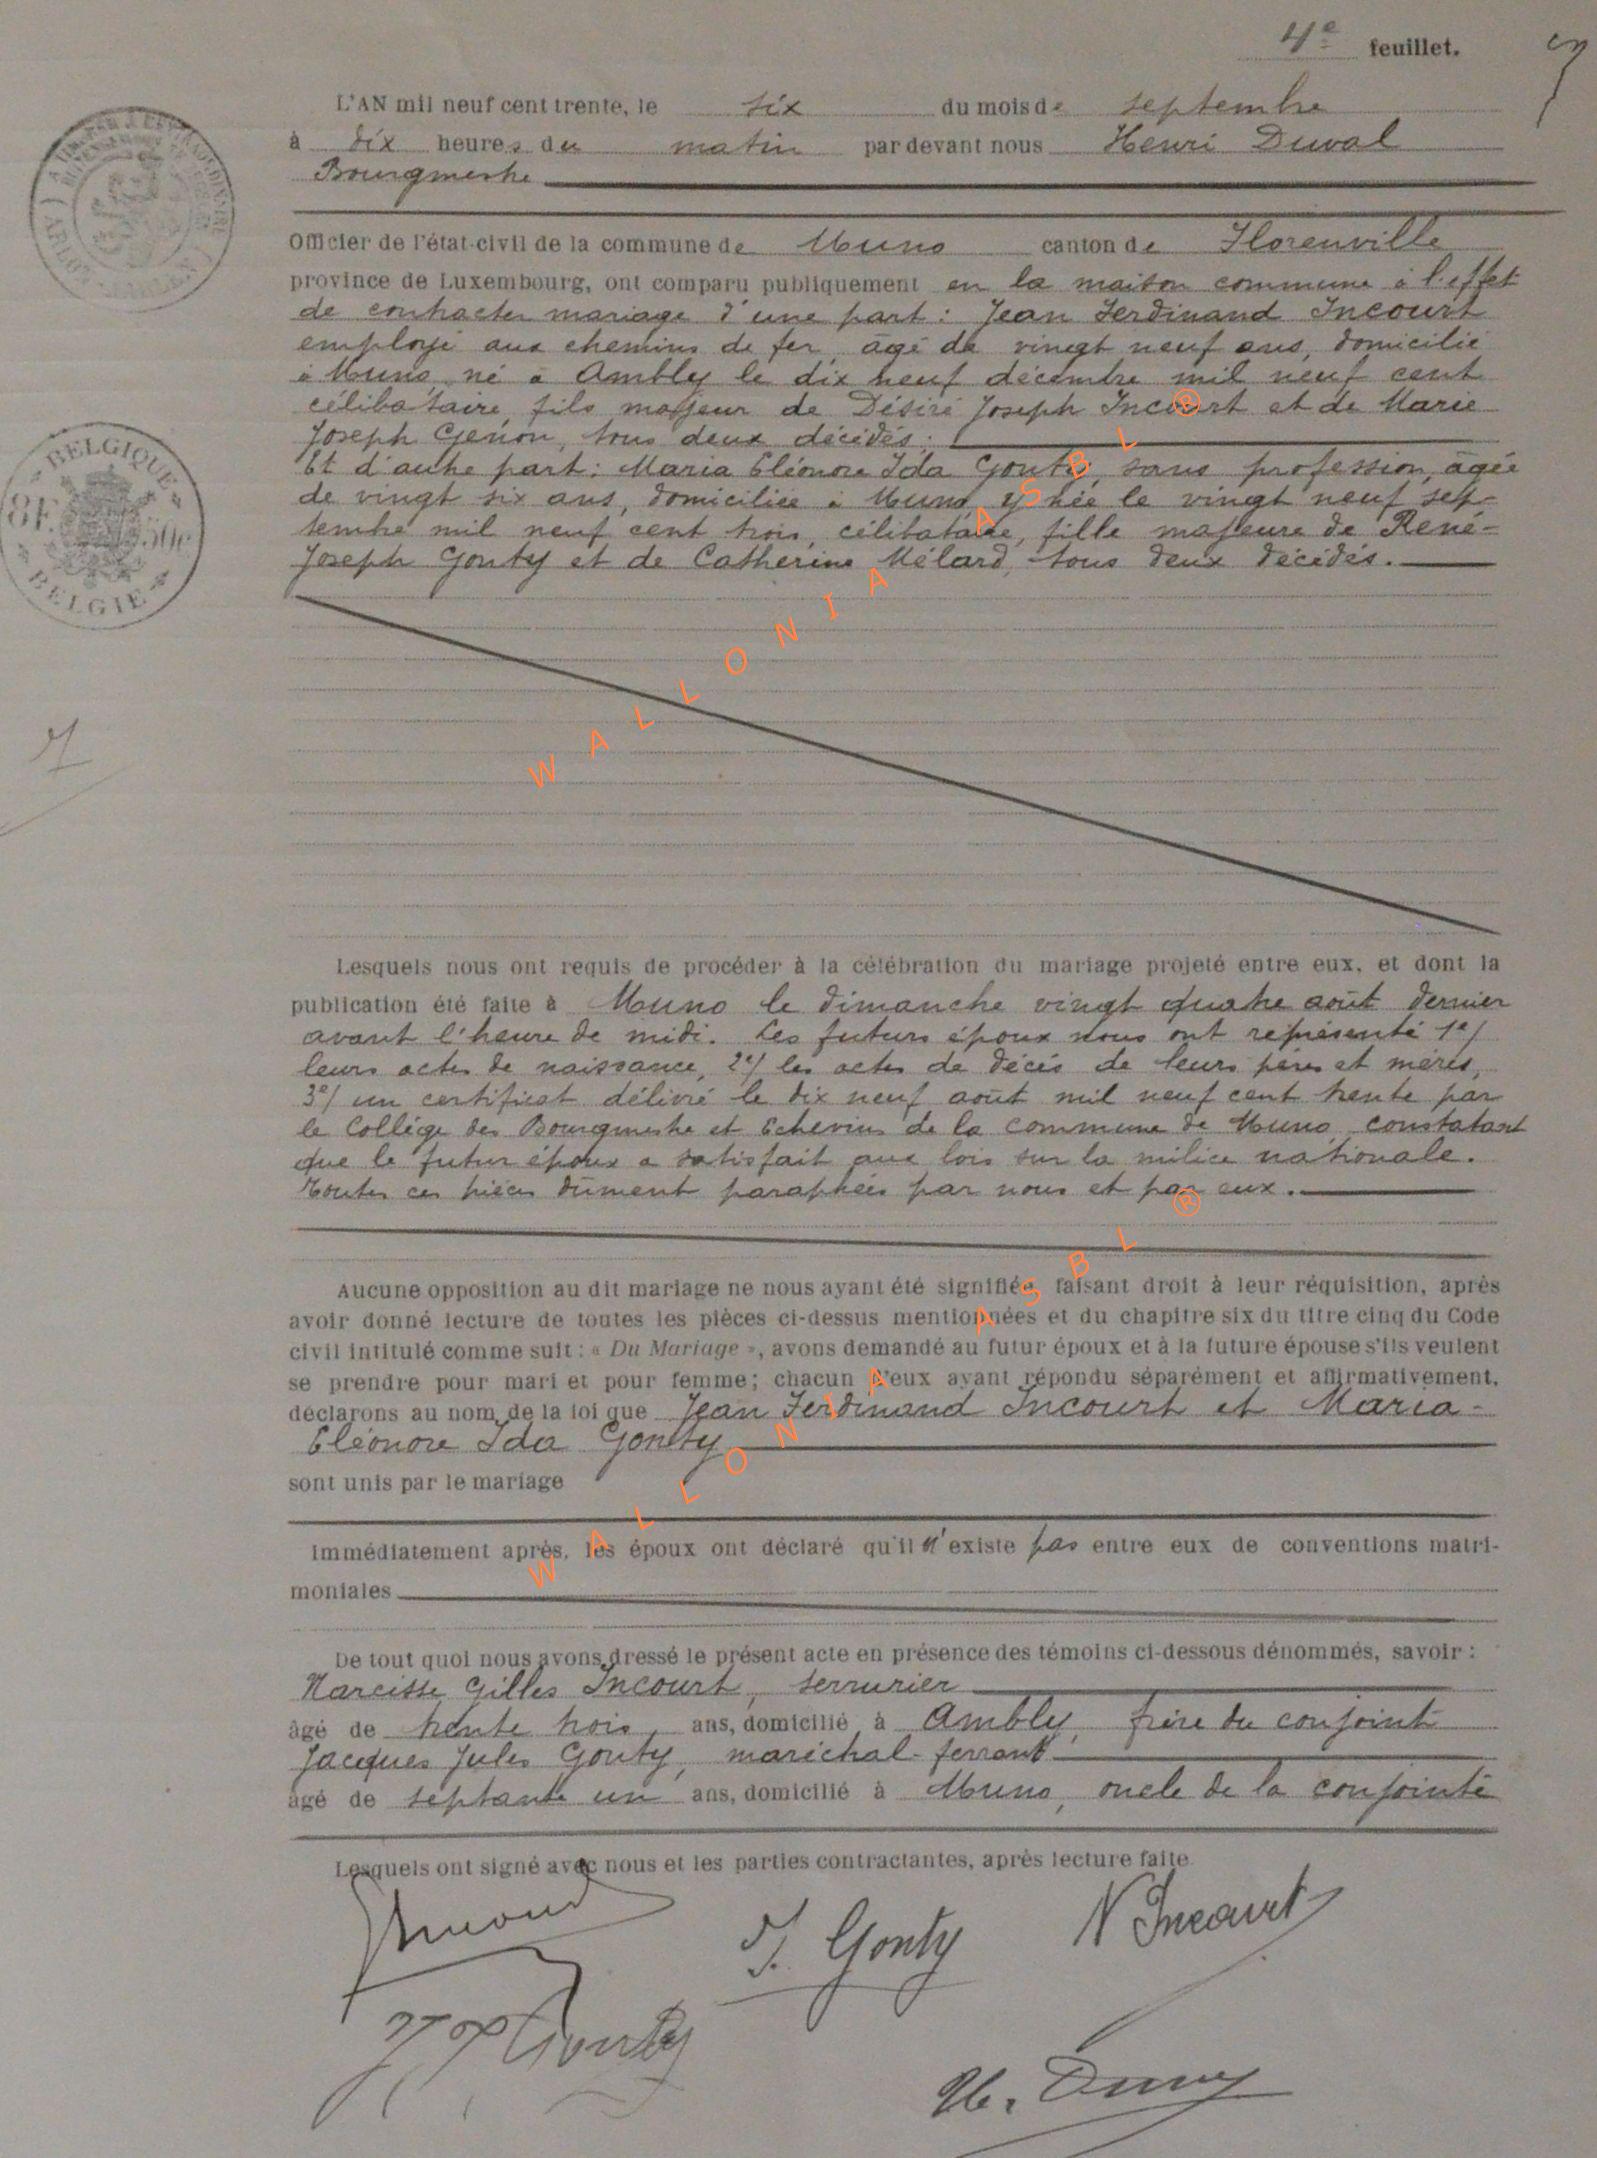 4e feuillet.
L'AN mil neuf cent trente, le six du mois de septembre
à dix heures du matin par devant nous Henri Duval
Bourgmestre
Officier de l'état-civil de la commune de Muno canton de Florenville
province de Luxembourg, ont comparu publiquement en la maison commune à l'effet
de contracter mariage d'une part : Jean Ferdinand Incourt
employé aux chemins de fer, âgé de vingt neuf ans, domicilié
à Muno, né à Ambly le dix neuf décembre mil neuf cent
célibataire, fils majeur de Désiré Joseph Incourt et de Marie
Joseph Genon, tous deux décédés.
Et d'autre part : Maria Eléonore Ida Gouty, sans profession, âgée
de vingt six ans, domiciliée à Muno, y née le vingt neuf sep-
tembre mil neuf cent trois, célibataire, fille majeure de René-
Joseph Gouty et de Catherine Mélard, tous deux décédés.
BELGIQUE
8F. 50c
BELGIE
Lesquels nous ont requis de procéder à la célébration du mariage projeté entre eux, et dont la
publication été faite à Muno le dimanche vingt quatre août dernier
avant l'heure de midi. Les futurs époux nous ont représenté 1e/
leurs actes de naissance, 2e/ les actes de décès de leurs pères et mères,
3e/ un certificat délivré le dix neuf août mil neuf cent trente par
le Collège des Bourgmestre et Echevins de la commune de Muno, constatant
que le futur époux a satisfait aux lois sur la milice nationale.
Toutes ces pièces dûment paraphées par nous et par eux.
Aucune opposition au dit mariage ne nous ayant été signifiée, faisant droit à leur réquisition, après
avoir donné lecture de toutes les pièces ci-dessus mentionnées et du chapitre six du titre cinq du Code
civil intitulé comme suit : « Du Mariage », avons demandé au futur époux et à la future épouse s'ils veulent
se prendre pour mari et pour femme ; chacun d'eux ayant répondu séparément et affirmativement,
déclarons au nom de la loi que Jean Ferdinand Incourt et Maria-
Eléonore Ida Gouty
sont unis par le mariage
Immédiatement après, les époux ont déclaré qu'il n'existe pas entre eux de conventions matri-
moniales
De tout quoi nous avons dressé le présent acte en présence des témoins ci-dessous dénommés, savoir :
Narcisse Gilles Incourt, serrurier
âgé de trente trois ans, domicilié à Ambly, frère du conjoint
Jacques Jules Gouty, maréchal-ferrant
âgé de septante un ans, domicilié à Muno, oncle de la conjointe
Lesquels ont signé avec nous et les parties contractantes, après lecture faite.
I. Gouty
N Incourt
Gouty
H. Duval
WALLONIA ASBL ®
WALLONIA ASBL ®